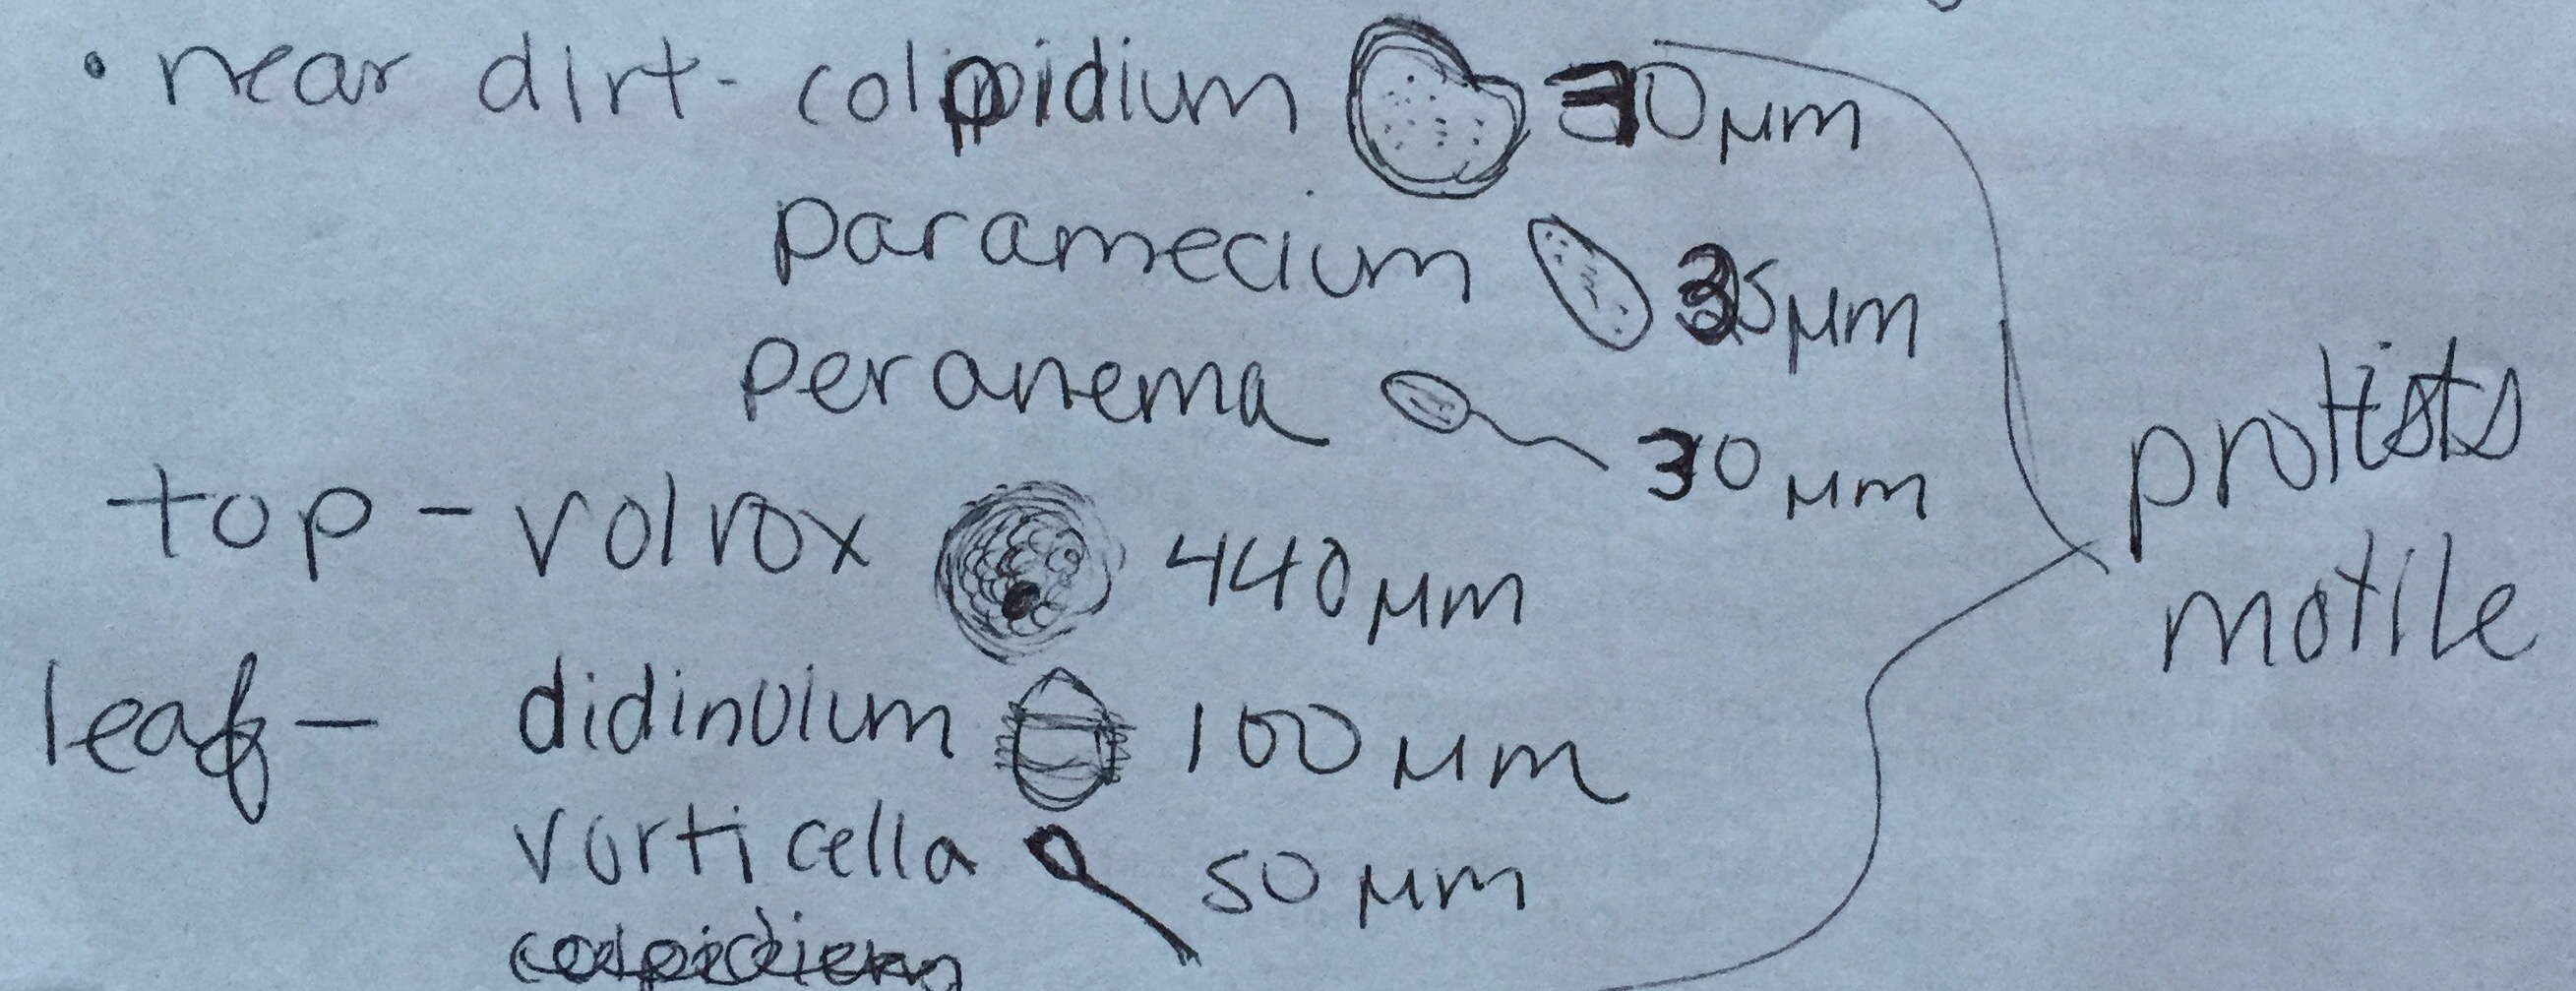 • near dirt - colpidium 30 μm
paramecium 35 μm
peranema 30 μm
top - volvox 440 μm
leaf - didinuium 100 μm
vorticella 50 μm
colpidium
protists
motile